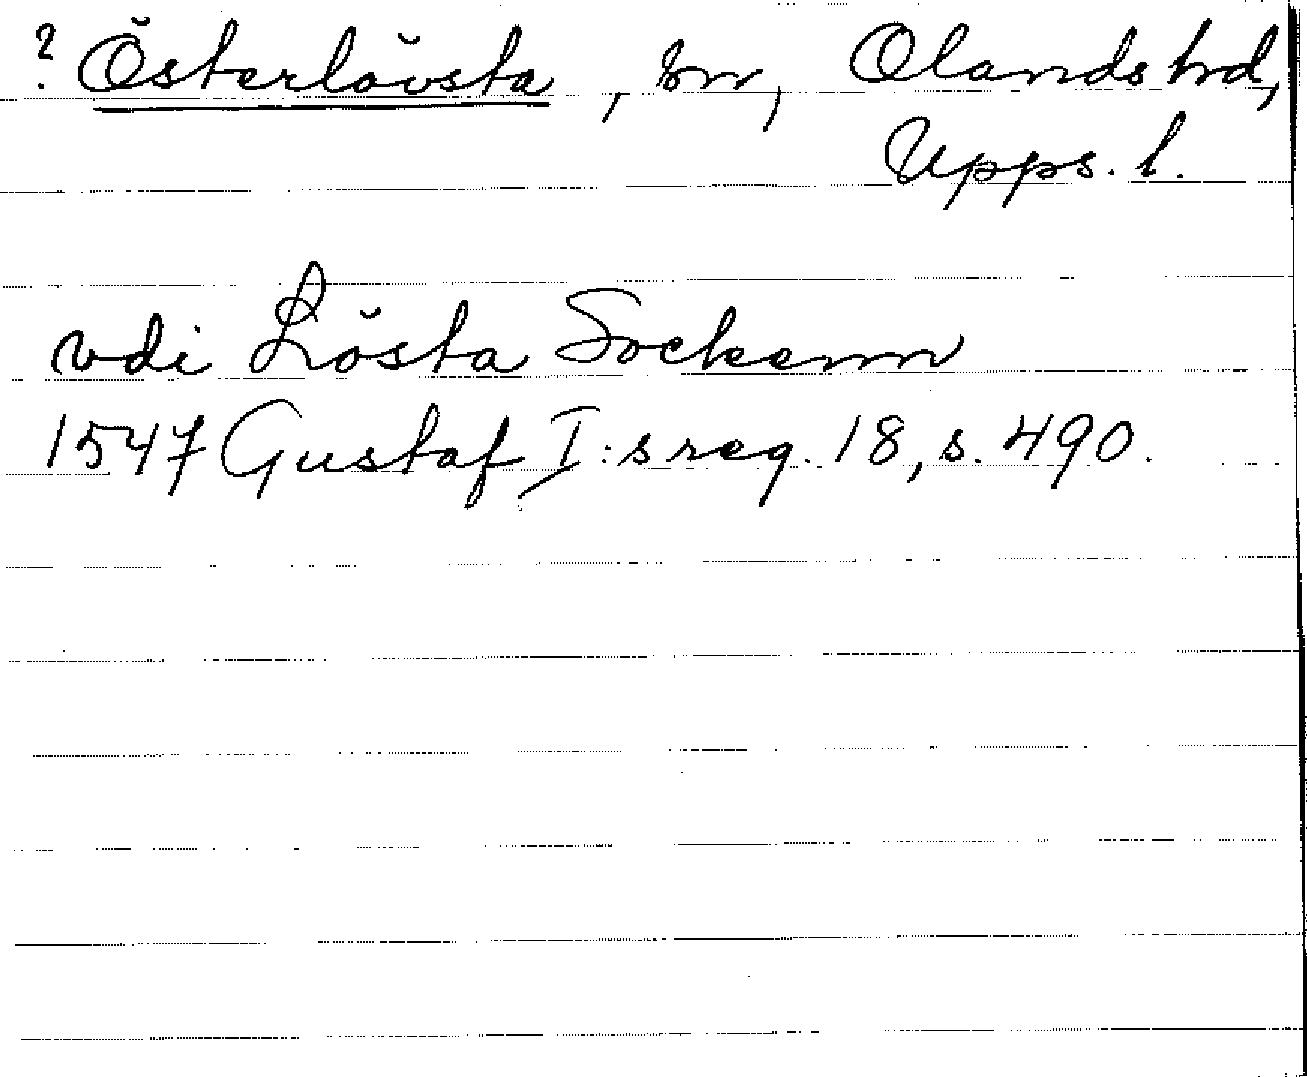 ? Österlövsta, sn, Olands hd,
Upps. l.
vdi Lösta Sockenn
1547 Gustaf I:s reg. 18, s. 490.